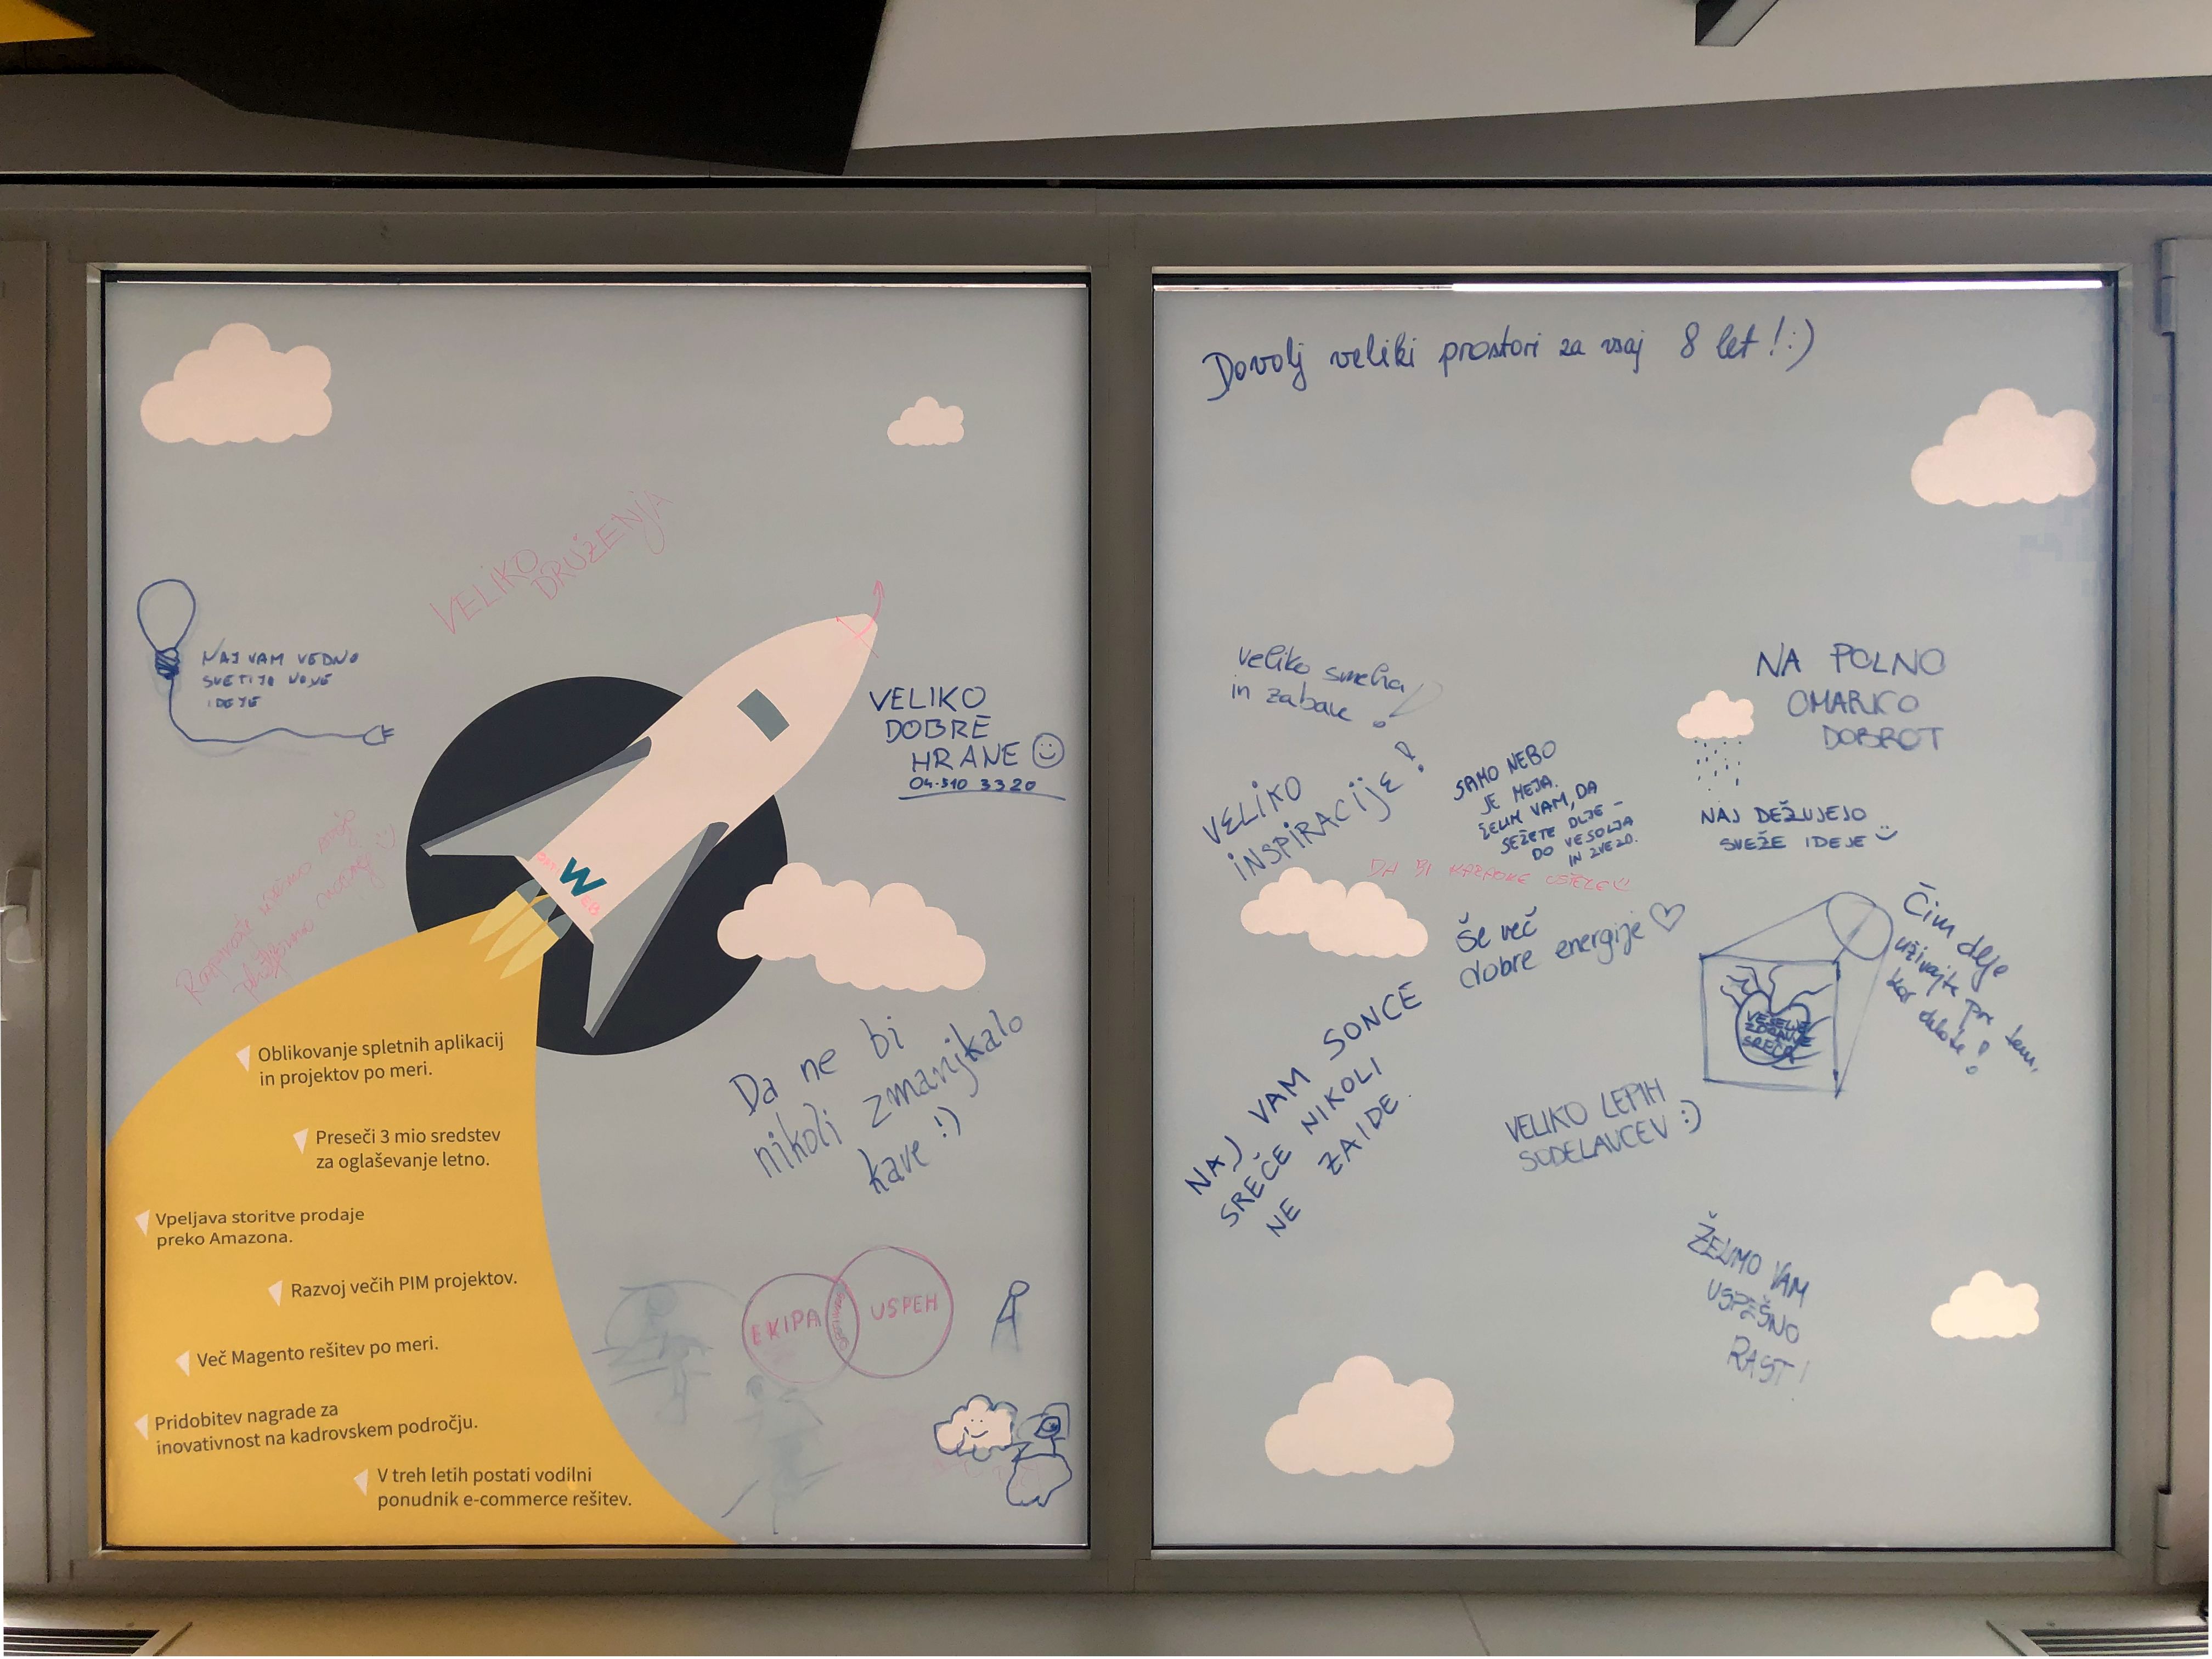 VELIKO
DRUŽENJA
NAJ VAM VEDNO
SVETIJO NOVE
IDEJE
VELIKO
DOBRE
HRANE
04-510 3320
W
EB
Oblikovanje spletnih aplikacij
in projektov po meri.
Preseči 3 mio sredstev
za oglaševanje letno.
Vpeljava storitve prodaje
preko Amazona.
Razvoj večih PIM projektov.
Več Magento rešitev po meri.
Pridobitev nagrade za
inovativnost na kadrovskem področju.
V treh letih postati vodilni
ponudnik e-commerce rešitev.
Da ne bi
nikoli zmanjkalo
kave !:)
EKIPA
USPEH
Dovolj veliki prostori za vsaj 8 let! :)
veliko smeha
in zabave!
VELIKO
INSPIRACIJE!
SAMO NEBO
JE MEJA.
ŽELIM VAM, DA
SEŽETE DLJE –
DO VESOLJA
IN ZVEZD.
DA BI
NA POLNO
OMARICO
DOBROT
NAJ DEŽUJEJO
SVEŽE IDEJE
Še več
dobre energije
Čim dlje
uživajte pri tem,
kar delate!
VESELJE
ZDRAVJE
SREČA
NAJ VAM SONCE
SREČE NIKOLI
NE ZAIDE.
VELIKO LEPIH
SODELAVCEV :)
ŽELIMO VAM
USPEŠNO
RAST!